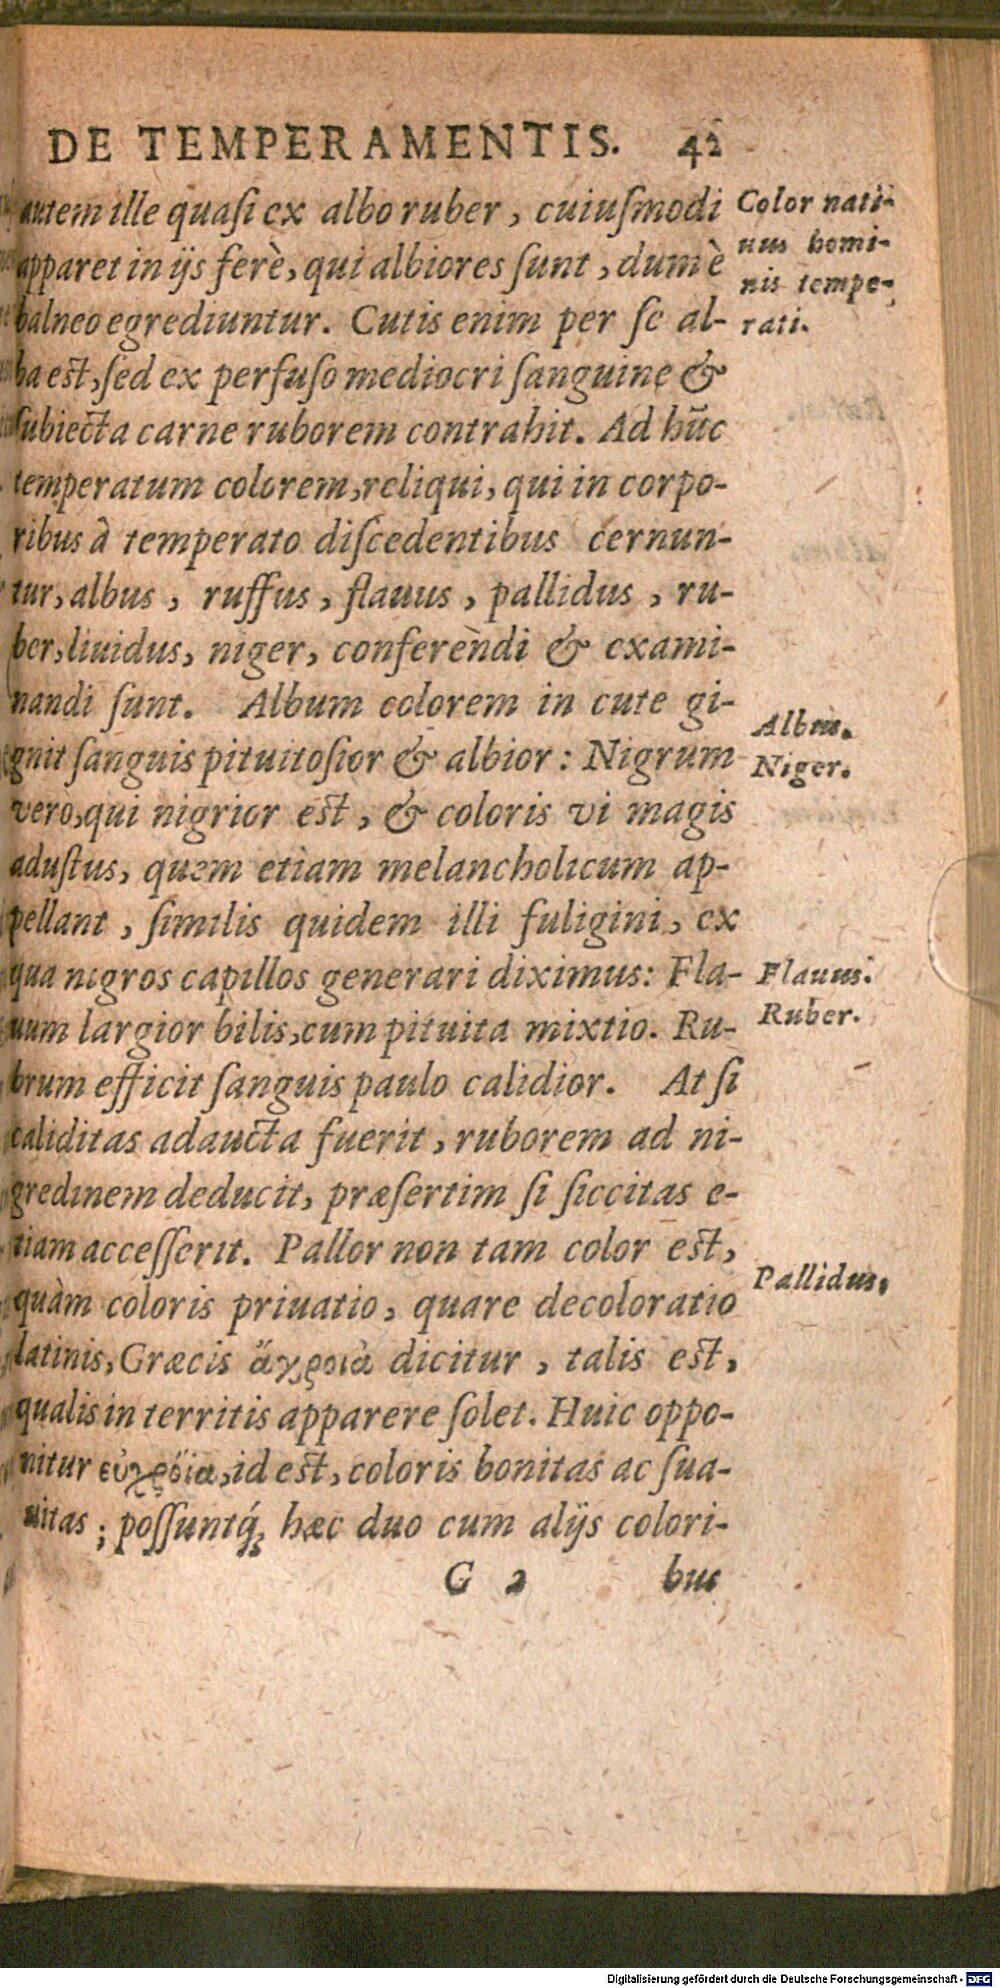 DE TEMPERAMENTIS. 42
autem ille quaſi ex albo ruber, cuiuſmodi
apparet in ijs ferè, qui albiores ſunt, dum è
balneo egrediuntur. Cutis enim per ſe al-
ba eſt, ſed ex perfuſo mediocri ſanguine &
ſubiecta carne ruborem contrahit. Ad hũc
temperatum colorem, reliqui, qui in corpo-
ribus à temperato diſcedentibus cernun-
tur, albus, ruffus, flauus, pallidus, ru-
ber, liuidus, niger, conferèndi & exami-
nandi ſunt. Album colorem in cute gi-
gnit ſanguis pituitoſior & albior: Nigrum
vero, qui nigrior eſt, & coloris vi magis
aduſtus, quem etiam melancholicum ap-
pellant, ſimilis quidem illi fuligini, ex
qua nigros capillos generari diximus: Fla-
uum largior bilis, cum pituita mixtio. Ru-
brum efficit ſanguis paulo calidior. At ſi
caliditas adaucta fuerit, ruborem ad ni-
gredinem deducit, præſertim ſi ſiccitas e-
tiam acceſſerit. Pallor non tam color eſt,
quàm coloris priuatio, quare decoloratio
latinis, Græcis ἄχροιὰ dicitur, talis eſt,
qualis in territis apparere ſolet. Huic oppo-
nitur εὐχρόϊα, id eſt, coloris bonitas ac ſua-
uitas; poſſuntq́; hæc duo cum alijs colori-
G 2 bus
Color nati-
uus homi-
nis tempe-
rati.
Albus.
Niger.
Flauus.
Ruber.
Pallidus.
Digitalisierung gefördert durch die Deutsche Forschungsgemeinschaft - DFG